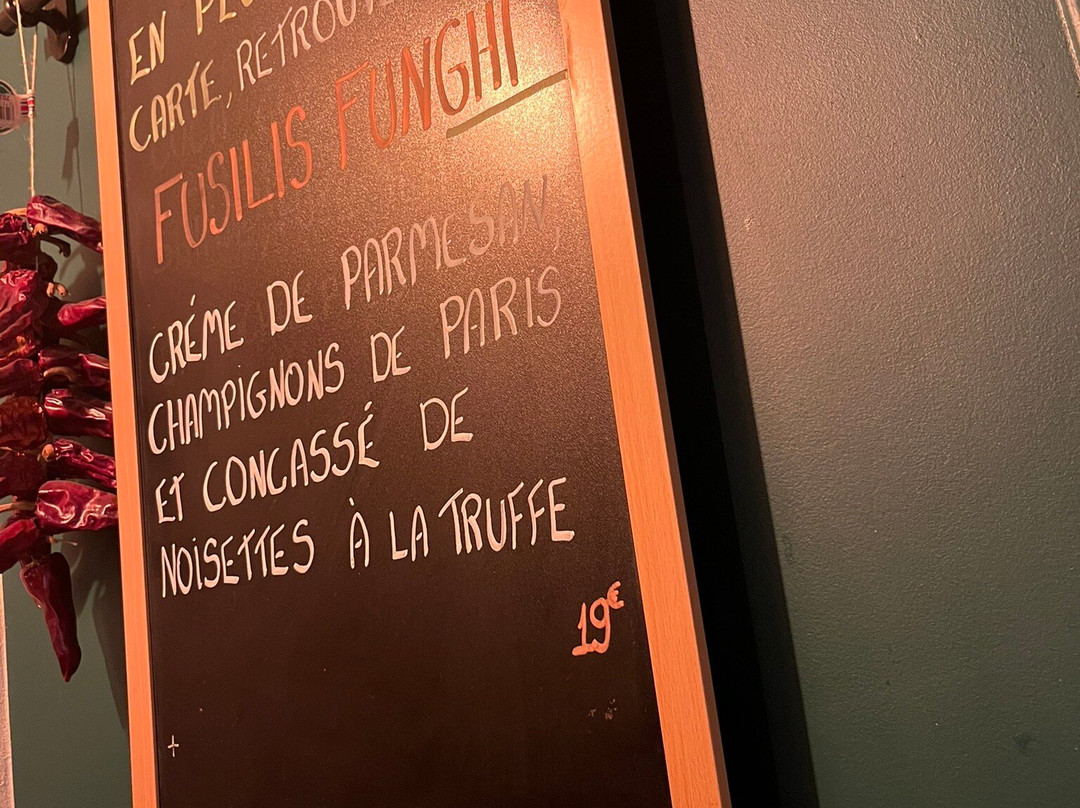 EN
CARTE, RETROUV
FUSILIS FUNGHI
CRÉME DE PARMESAN,
CHAMPIGNONS DE PARIS
ET CONCASSÉ DE
NOISETTES À LA TRUFFE
19€